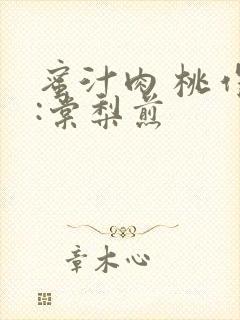 蜜汁肉桃作
:棠梨煎
章木心